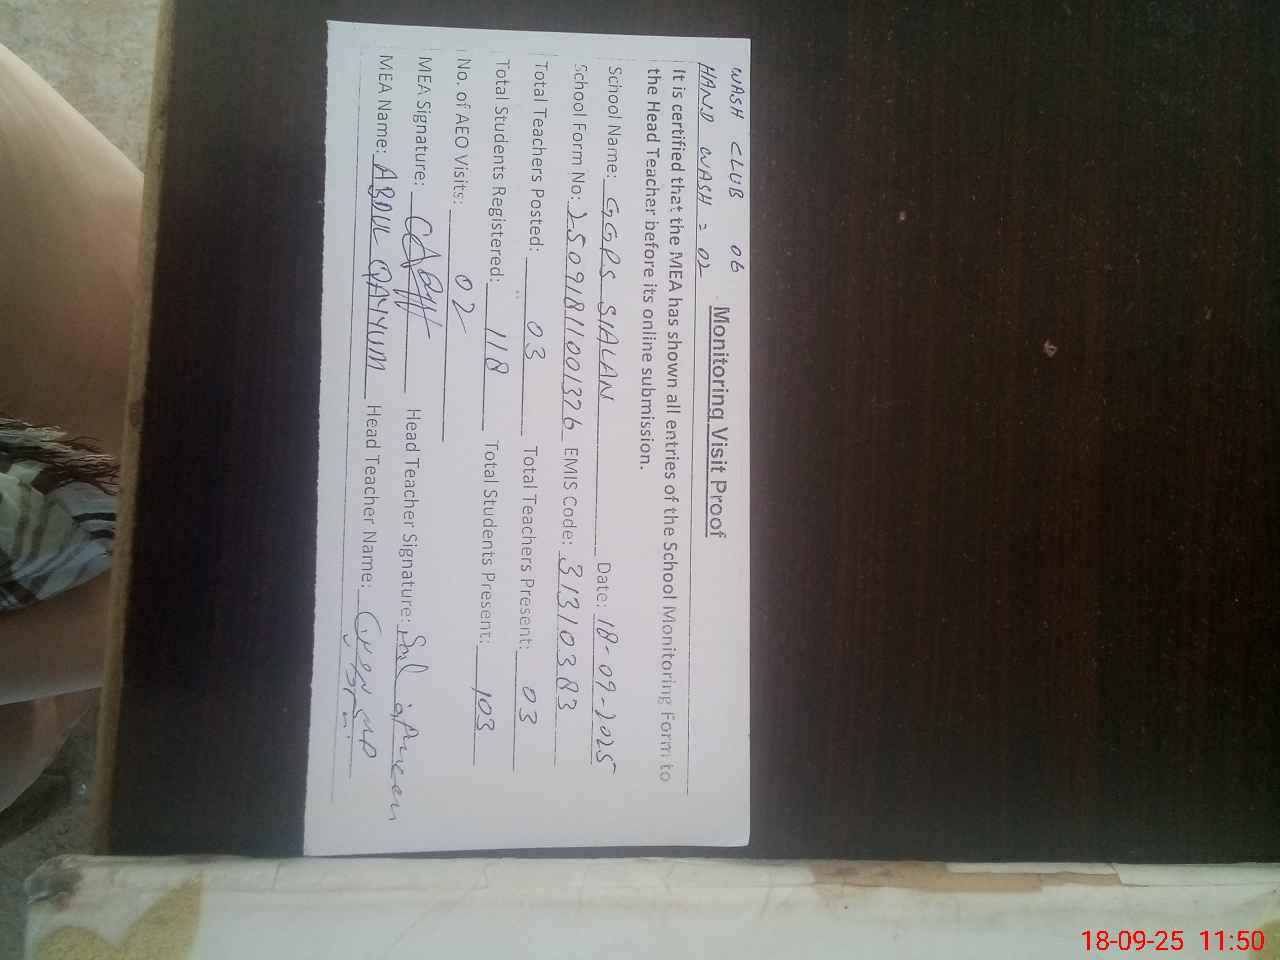 WASH CLUB 06
HAND WASH = 02
Monitoring Visit Proof
It is certified that the MEA has shown all entries of the School Monitoring Form to
the Head Teacher before its online submission.
School Name: GGPS SIALAN Date: 18-09-2025
School Form No: 250918110013726 EMIS Code: 31310383
Total Teachers Posted: 03 Total Teachers Present: 03
Total Students Registered: 118 Total Students Present: 103
No. of AEO Visits: 02
MEA Signature: Head Teacher Signature:
MEA Name: ABDUL QAYYUM Head Teacher Name:
18-09-25 11:50